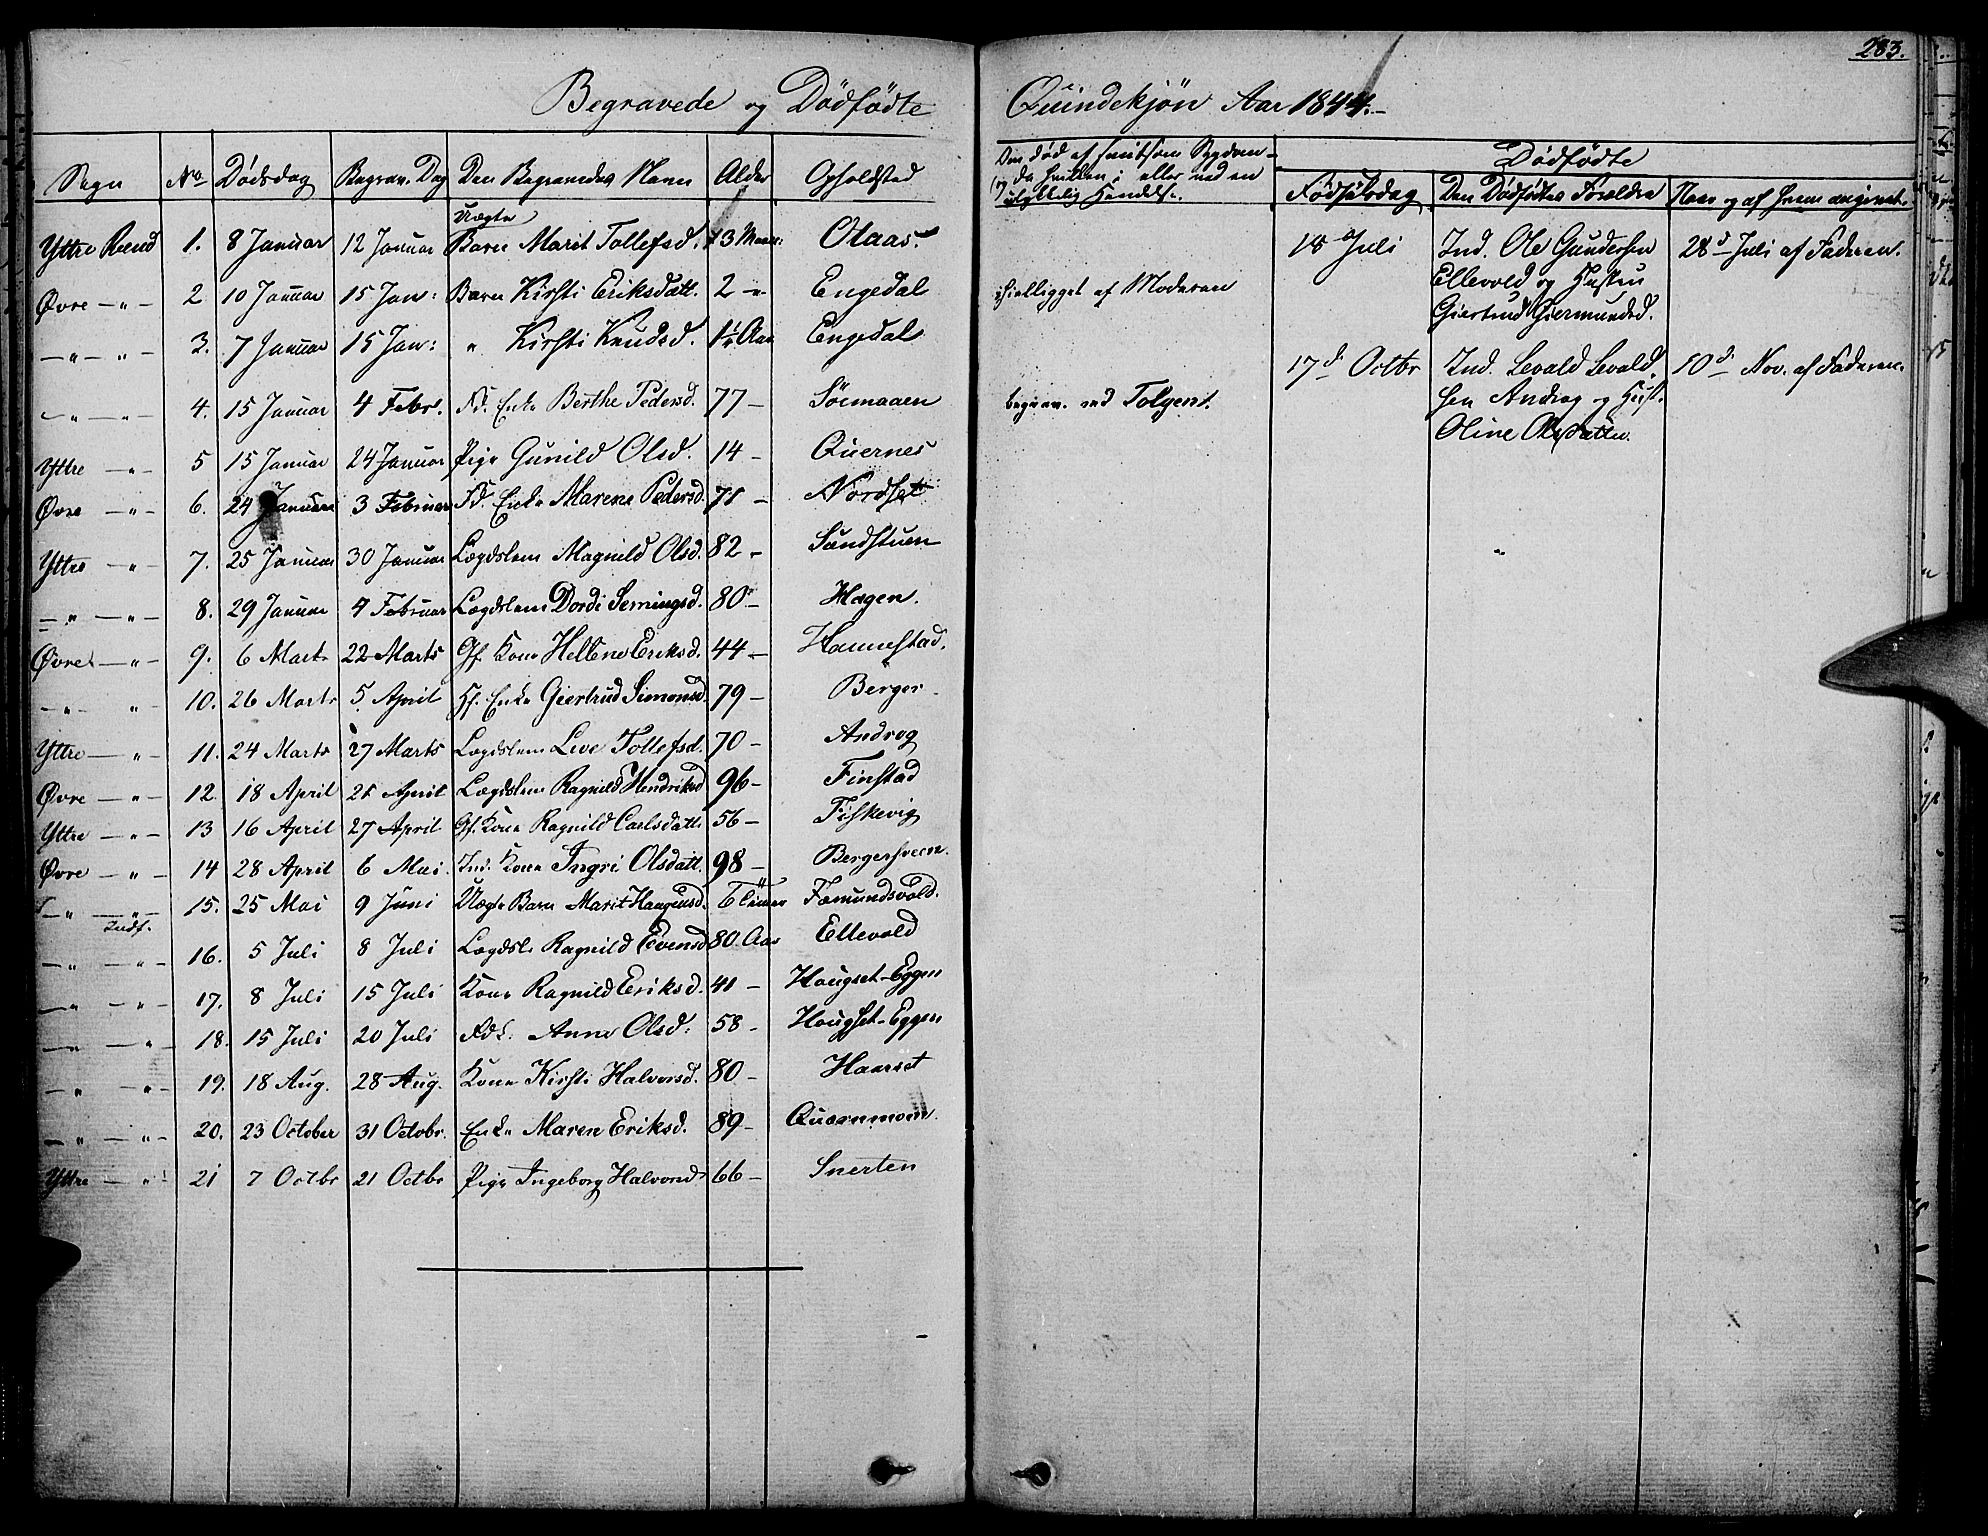 283.
Begravede og Dödfödte Quindekjön Aar 1844.-
Sogn No. Dödsdag Begrav. Dag Den Begravedes Navn Alder Opholdsted
Dödfödte
Födselsdag Den Dödfödtes Foreldre Naar og af hvem angivet.
Uægte
Yttre Rend 1. 8 Januar 12 Januar Barn Marit Tollefsd. 3 Maan: Olaas.
Øvre - „ - 2 10 Januar 15 Jan: Barn Kirsti Eriksdatt. 2 -„- Engedal ihielligget af Moderen
- „ - „ - 3. 7 Januar 15 Jan: „ Kirsti Knudsd. 1½ Aar Engedal
- „ - „ - 4. 15 Januar 4 Febr. Fd. Enke Berthe Pedersd. 77 - Sörmaaen begrav. ved Tolgen.
Yttre - „ - 5 15 Januar 24 Januar Pige Gunild Olsd. 14 - Quernes
Øvre - „ - 6. 24 Januar 3 Februar Fd. Enke Maren Pedersd. 71 - Nordset
Yttre - „ - 7. 25 Januar 30 Januar Lægdslem Magnild Olsd. 82 - Sandstuen
- „ - „ - 8. 29 Januar 4 Februar Lægdslem Dordi Semingsd. 80 - Hagen.
Øvre - „ - 9. 6 Marts 22 Marts Gf. Kone Hellene Eriksd. 44 - Hannestad.
- „ - „ - 10. 26 Marts 5 April Hf. Enke Giertrud Simonsd. 79 - Berger
Yttre - „ - 11. 24 Marts 27 Marts Lægdslem Live Tollefsd. 70 - Androg
Øvre - „ - 12. 18 April 21 April Lægdslem Ragnild Hendriksd 96 - Finstad
Yttre - „ - 13 16 April 27 April Gf. Kone Ragnild Carlsdatt. 56 - Fiskevig
Øvre - „ - 14 28 April 6 Mai Ind. Kone Ingri Olsdatt. 98 - Bergersveen.
- „ - „ - 15. 25 Mai 9 Juni Uægte Barn Marit Haagensd. Timer Fæmundsvold.
Indf.
- „ - „ - 16. 5 Juli 8 Juli Lægdsl. Ragnild Evensd 80 Aar Ellevold
- „ - „ - 17. 8 Juli 15 Juli Kone Ragnild Eriksd. 41 - Hougset-Eggen
- „ - „ - 18. 15 Juli 20 Juli Anne Olsd: 58 - Hougset-Eggen
- „ - „ - 19. 18 Aug. 28 Aug. Kone Kirsti Halvorsd. 80 - Haarset
- „ - „ - 20. 23 October 31 Octobr. Enke Maren Eriksd. 89 - Quernmoen.
Yttre - „ - 21 7 Octbr 21 Octbr Pige Ingeborg Halvorsd 66 - Snerten
18 Juli Ind. Ole Gundersen 28d Juli af Faderen.
Ellevold og Hustru
Giertrud Giermundsd.
17d Octbr Ind. Sevald Sevald- 10d. Nov. af Faderen.
sen Androg og Hust.
Oline Olesdatter.